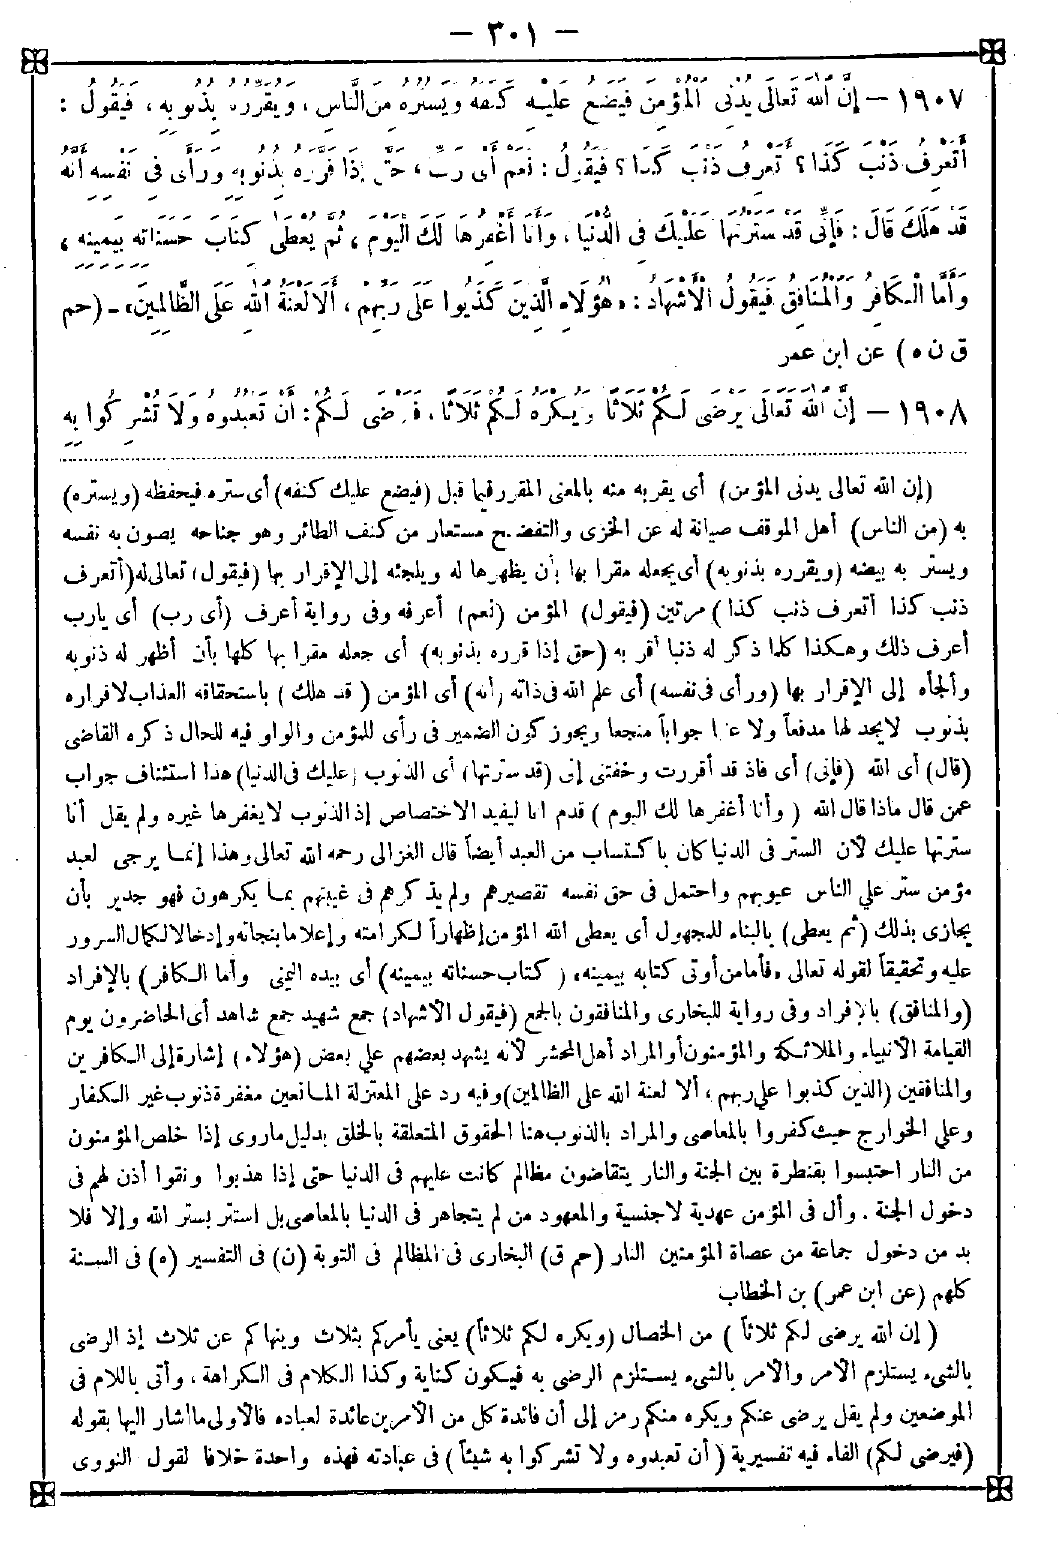 — ٣٠١ —
١٩٠٧ — إِنَّ اللهَ تَعَالَى يُدْنِي الْمُؤْمِنَ فَيَضَعُ عَلَيْهِ كَنَفَهُ وَيَسْتُرُهُ مِنَ النَّاسِ ، وَيُقَرِّرُهُ بِذُنُوبِهِ ، فَيَقُولُ :
أَتَعْرِفُ ذَنْبَ كَذَا ؟ أَتَعْرِفُ ذَنْبَ كَذَا ؟ فَيَقُولُ : نَعَمْ أَىْ رَبِّ ، حَتَّى إِذَا قَرَّرَهُ بِذُنُوبِهِ وَرَأَى فِى نَفْسِهِ أَنَّهُ
قَدْ هَلَكَ قَالَ : فَإِنِّى قَدْ سَتَرْتُهَا عَلَيْكَ فِى الدُّنْيَا ، وَأَنَا أَغْفِرُهَا لَكَ الْيَوْمَ ، ثُمَّ يُعْطَى كِتَابَ حَسَنَاتِهِ بِيَمِينِهِ ،
وَأَمَّا الْكَافِرُ وَالْمُنَافِقُ فَيَقُولُ الْأَشْهَادُ : «هٰؤُلَاءِ الَّذِينَ كَذَبُوا عَلَى رَبِّهِمْ ، أَلَا لَعْنَةُ اللهِ عَلَى الظَّالِمِينَ» ـ (حم
ق ن ه) عن ابن عمر
١٩٠٨ — إِنَّ اللهَ تَعَالَى يَرْضَى لَكُمْ ثَلَاثًا وَيَكْرَهُ لَكُمْ ثَلَاثًا ، فَيَرْضَى لَكُمْ : أَنْ تَعْبُدُوهُ وَلَا تُشْرِكُوا بِهِ
(إن الله تعالى يدنى المؤمن) أى يقربه منه بالمعنى المقرر فيما قبل (فيضع عليك كنفه) أى ستره فيحفظه (ويستره)
به (من الناس) أهل الموقف صيانة له عن الخزى والتفضيح مستعار من كنف الطائر وهو جناحه يصون به نفسه
ويستر به بيضه (ويقرره بذنوبه) أى يجعله مقرا بها بأن يظهرها له ويلجئه إلى الإقرار بها (فيقول) تعالى له (أتعرف
ذنب كذا أتعرف ذنب كذا) مرتين (فيقول) المؤمن (نعم) أعرفه وفى رواية أعرف (أى رب) أى يارب
أعرف ذلك وهكذا كلما ذكر له ذنبا أقر به (حتى إذا قرره بذنوبه) أى جعله مقرا بها كلها بأن أظهر له ذنوبه
وألجأه إلى الإقرار بها (ورأى فى نفسه) أى علم الله فى ذاته (أنه) أى المؤمن (قد هلك) باستحقاقه العذاب لاقراره
بذنوب لايجد لها مدفعاً ولا عنها جواباً منجعا ويجوز كون الضمير فى رأى للمؤمن والواو فيه للحال ذكره القاضى
(قال) أى الله (فإنى) أى فاذ قد أقررت وخفتنى إنى (قد سترتها) أى الذنوب (عليك فى الدنيا) هذا استئناف جواب
عمن قال ماذا قال الله (وأنا أغفرها لك اليوم) قدم انا ليفيد الاختصاص إذ الذنوب لايغفرها غيره ولم يقل أنا
سترتها عليك لأن الستر فى الدنيا كان باكتساب من العبد أيضاً قال الغزالى رحمه الله تعالى وهذا إنما يرجى لعبد
مؤمن ستر على الناس عيوبهم واحتمل فى حق نفسه تقصيرهم ولم يذكرهم فى غيبتهم بما يكرهون فهو جدير بأن
يجازى بذلك (ثم يعطى) بالبناء للمجهول أى يعطى الله المؤمن إظهاراً لكرامته وإعلاما بنجاته وإدخالا لكمال السرور
عليه وتحقيقاً لقوله تعالى «فأما من أوتى كتابه بيمينه» (كتاب حسناته بيمينه) أى بيده اليمنى وأما الكافر) بالإفراد
(والمنافق) بالإفراد وفى رواية للبخارى والمنافقون بالجمع (فيقول الأشهاد) جمع شهيد جمع شاهد أى الحاضرون يوم
القيامة الأنبياء والملائكة والمؤمنون أو المراد أهل المحشر لأنه يشهد بعضهم على بعض (هؤلاء) إشارة إلى الكافرين
والمنافقين (الذين كذبوا على ربهم ، ألا لعنة الله على الظالمين) وفيه رد على المعتزلة المانعين مغفرة ذنوب غير الكفار
وعلى الخوارج حيث كفروا بالمعاصى والمراد بالذنوب هنا الحقوق المتعلقة بالخلق بدليل ماروى إذا خلص المؤمنون
من النار احتبسوا بقنطرة بين الجنة والنار يتقاضون مظالم كانت عليهم فى الدنيا حتى إذا هذبوا ونقوا أذن لهم فى
دخول الجنة . وأل فى المؤمن عهدية لاجنسية والمعهود من لم يتجاهر فى الدنيا بالمعاصى بل استتر بستر الله وإلا فلا
بد من دخول جماعة من عصاة المؤمنين النار (حم ق) البخارى فى المظالم فى التوبة (ن) فى التفسير (ه) فى السنة
كلهم (عن ابن عمر) بن الخطاب
(إن الله يرضى لكم ثلاثاً) من الخصال (ويكره لكم ثلاثاً) يعنى يأمركم بثلاث وينهاكم عن ثلاث إذ الرضى
بالشىء يستلزم الأمر والأمر بالشىء يستلزم الرضى به فيكون كناية وكذا الكلام فى الكراهة ، وأتى باللام فى
الموضعين ولم يقل يرضى عنكم ويكره منكم رمز إلى أن فائدة كل من الأمرين عائدة لعباده فالأولى ماأشار اليها بقوله
(فيرضى لكم) الفاء فيه تفسيرية (أن تعبدوه ولا تشركوا به شيئاً) فى عبادته فهذه واحدة خلافا لقول النووى